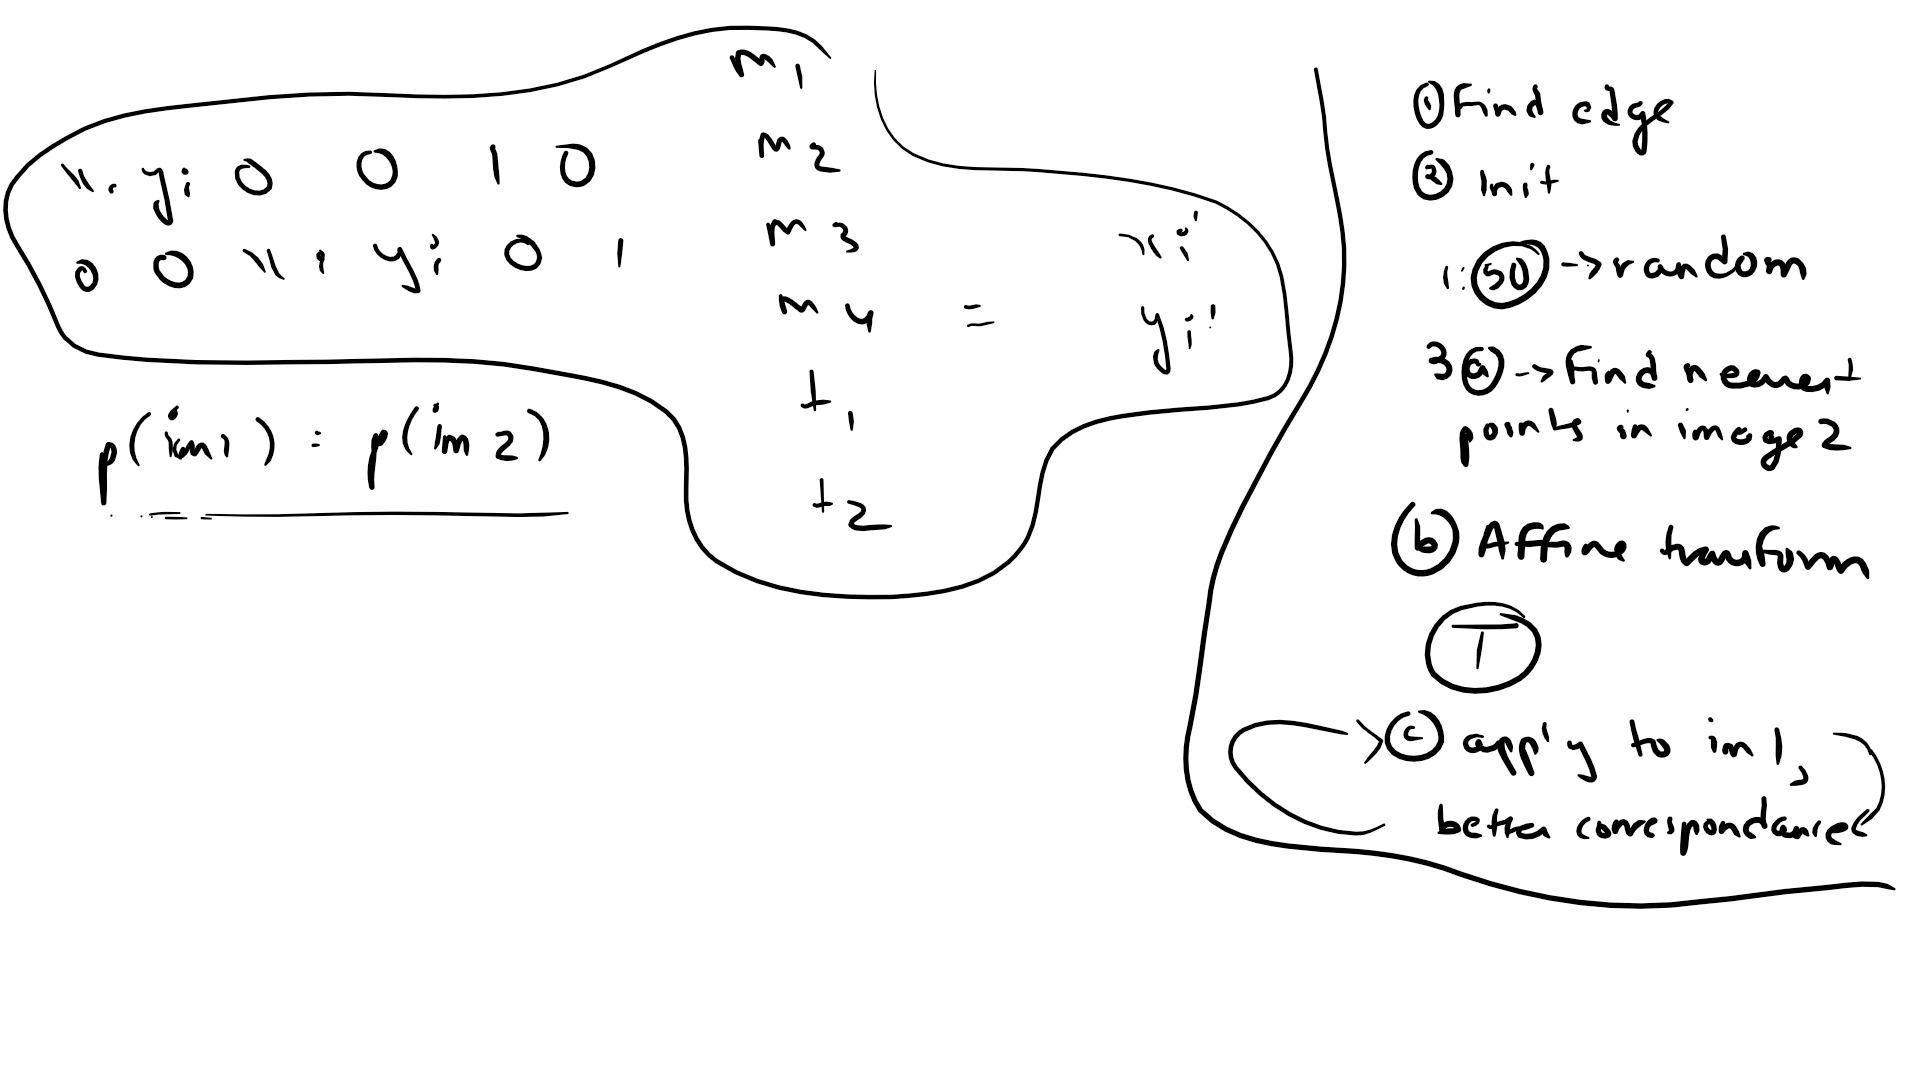 m1
xi yi 0 0 1 0
m2
0 0 xi yi 0 1
m3
m4 = xi' yi'
t1
t2
p(im1) = p(im2)
① Find edge
② Init
1:50 -> random
3 ⓐ -> Find nearest
points in image 2
ⓑ Affine transform
T
ⓒ apply to im1,
better correspondances